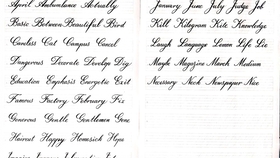 April Ambulance Actually
Basic Between Beautiful Bird
Careless Cat Campus Cancel
Dangerous Decorate Develop Dig
Education Emphasis Energetic Exit
Famous Factory February Fix
Generous Gentle Gentlemen Gone
Haircut Happy Homesick Hope
January June July Judge Job
Kill Kilogram Kite Knowledge
Laugh Language Lemon Life Lie
Maybe Magazine March Medium
Necessary Neck Newspaper Nice